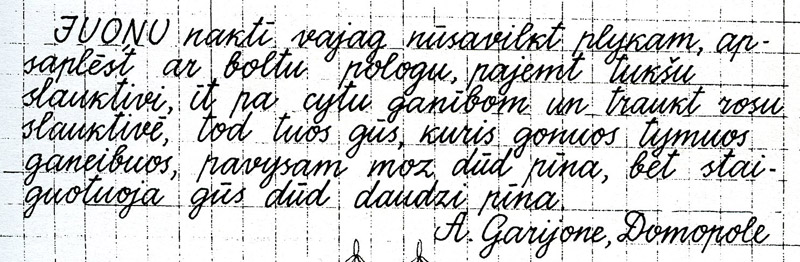 JUOŅU naktī vajag nūsavilkt plykam, ap-
saplēst ar boltu pologu, pajemt tukšu
slauktivi, īt pa cytu ganībom un traukt rosu
slauktivē, tod tuos gūs, kuris gonuos tymuos
ganeibuos, pavysam moz dūd pīna, bet stai-
guotuoja gūs dūd daudzi pīna.
A. Garijone, Domopole